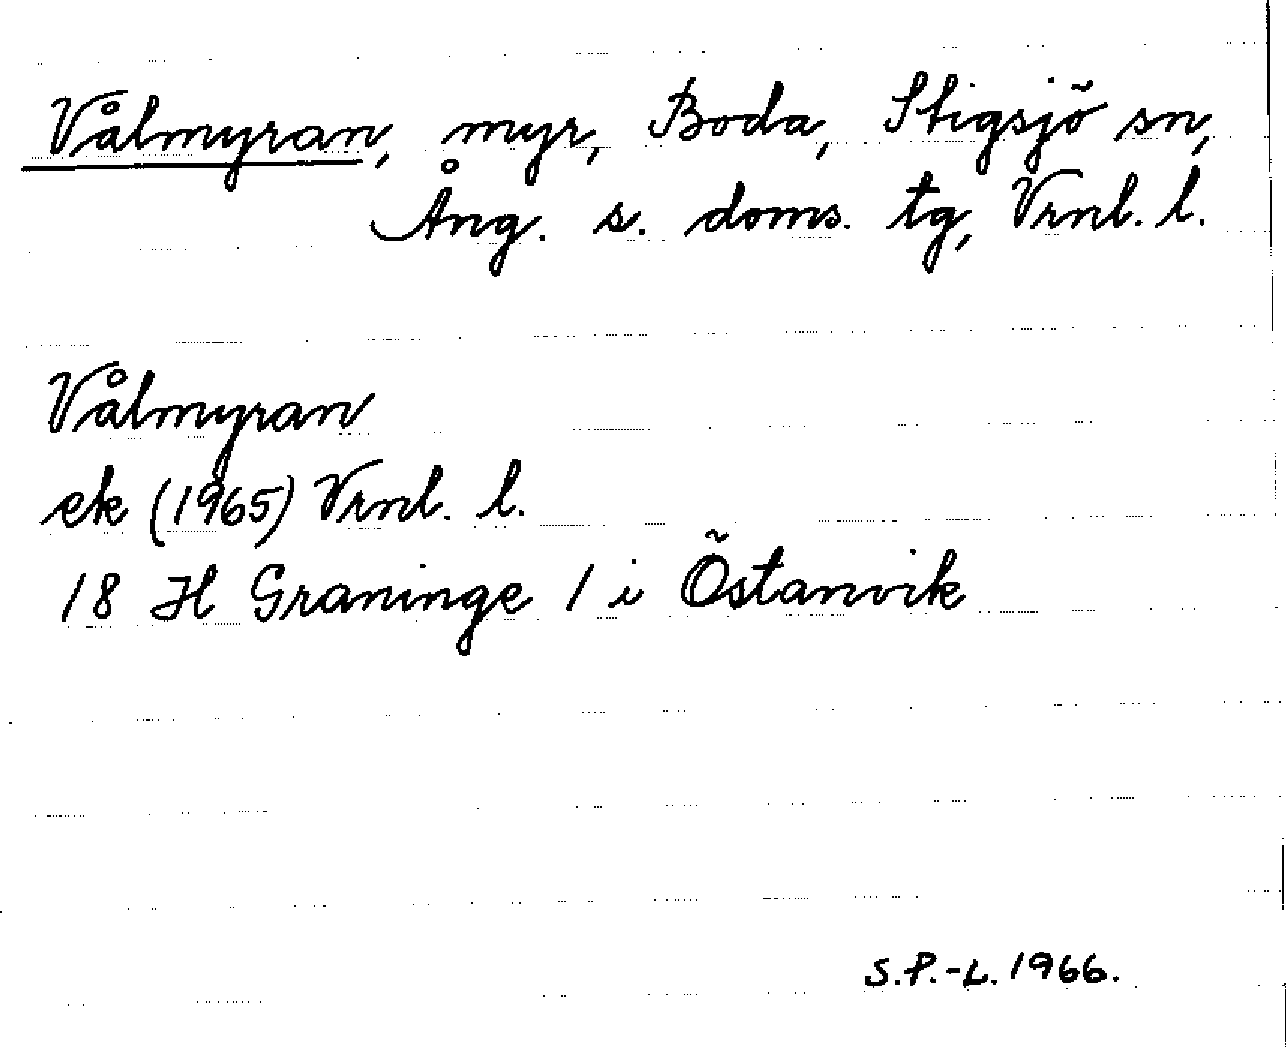 Vålmyran, myr, Boda, Stigsjö sn,
Ång. s. doms. tg, Vrnl. l.
Vålmyran
ek (1965) Vrnl. l.
18 H Graninge 1 i Östanvik
S.P.-L. 1966.